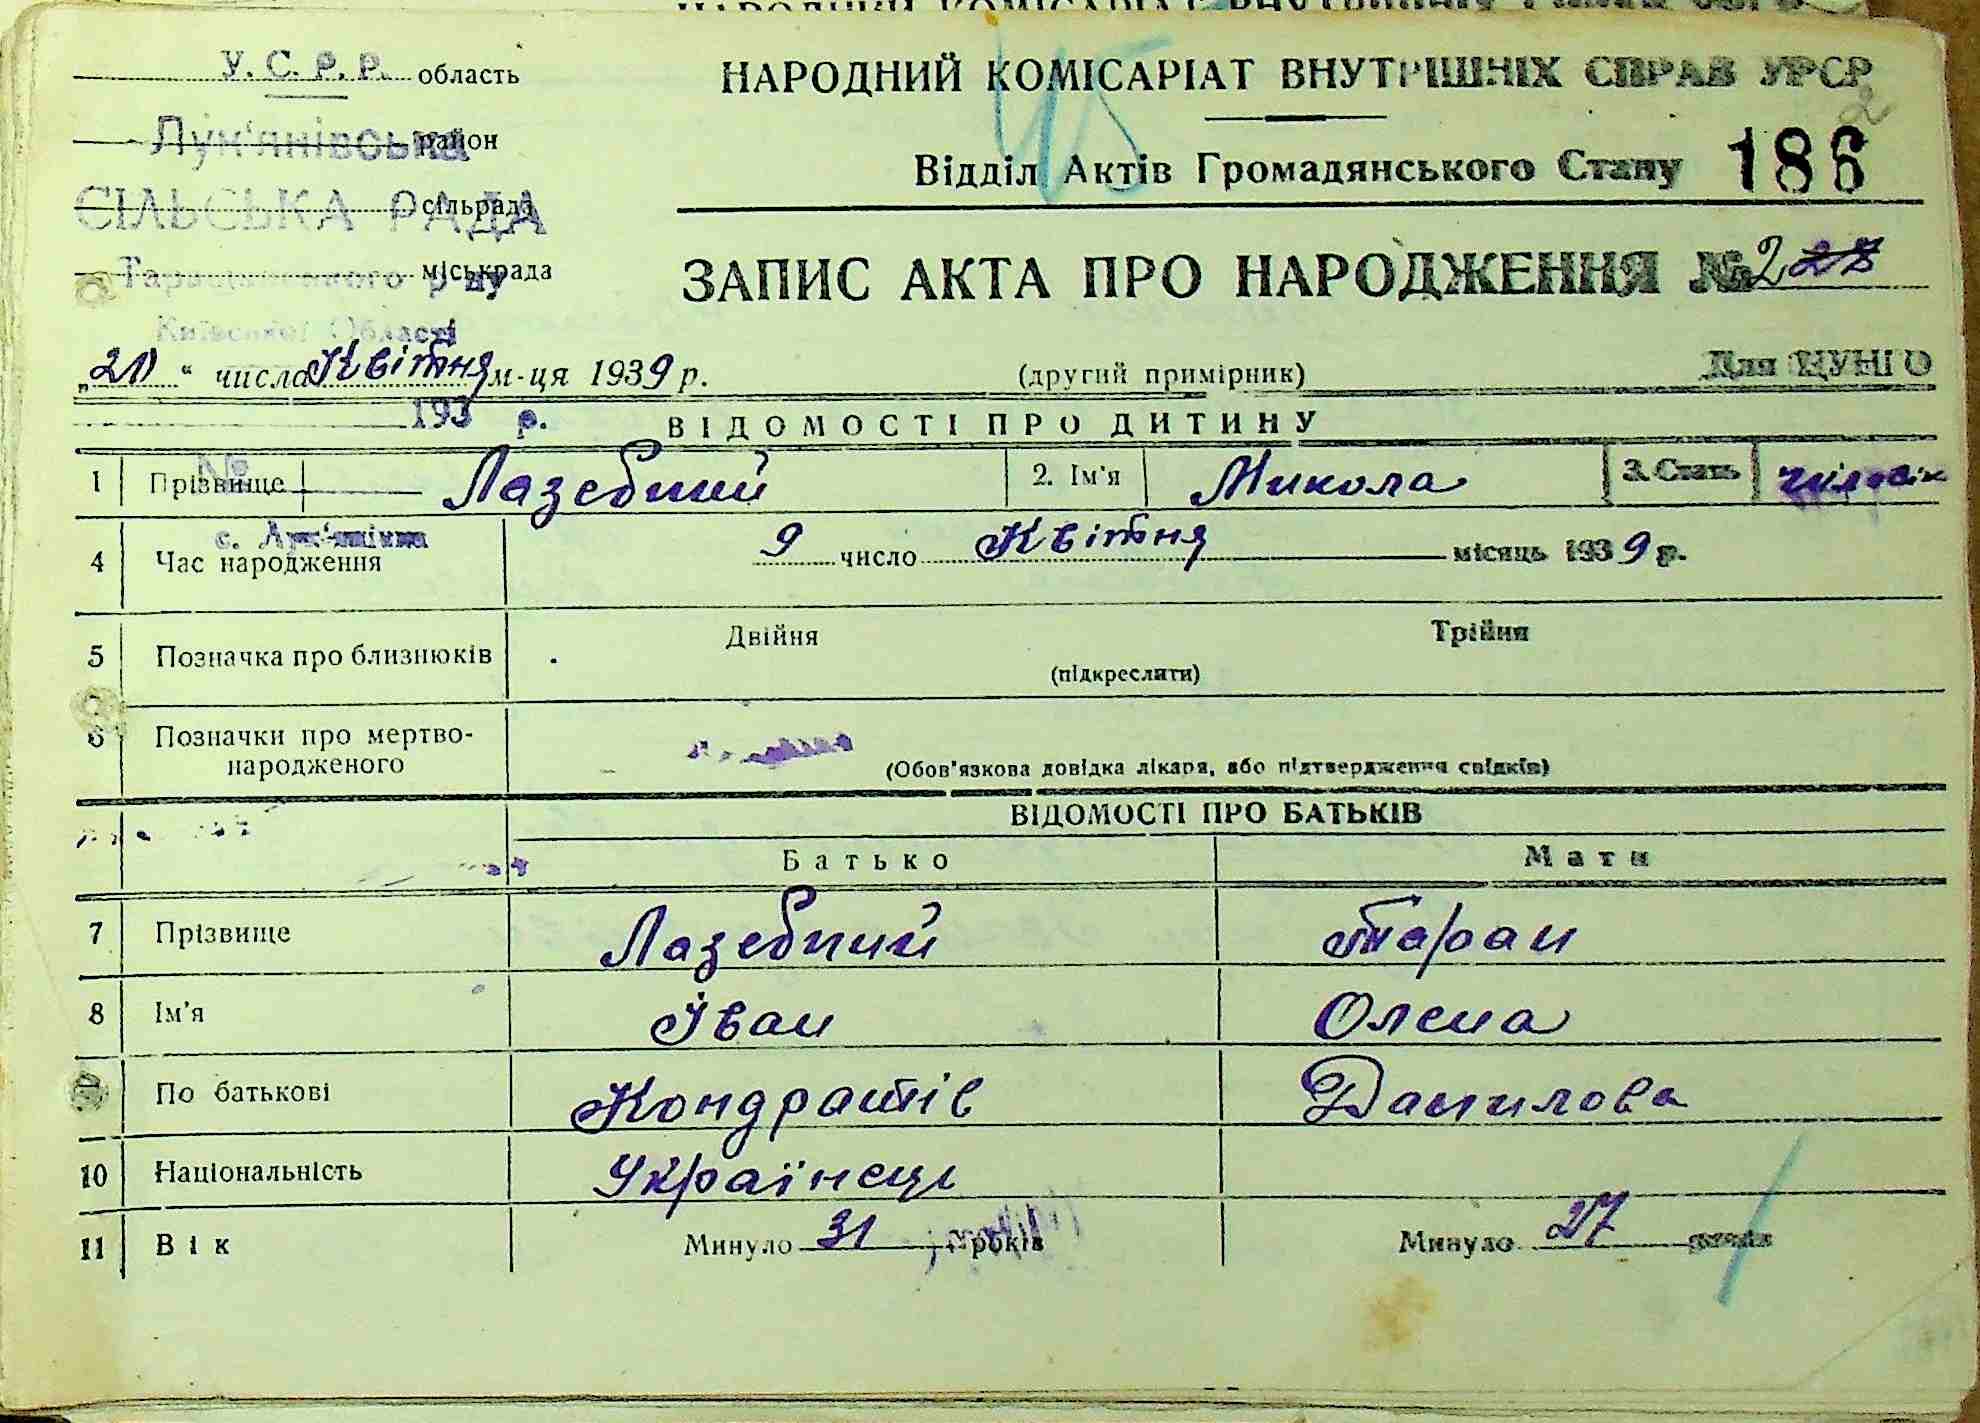 У. С. Р. Р. область
НАРОДНИЙ КОМІСАРІАТ ВНУТРІШНІХ СПРАВ УРСР
45
2
Лук'янівська район
Відділ Актів Громадянського Стану 186
СІЛЬСЬКА РАДА сільрада
Таращанського р-ну міськрада
ЗАПИС АКТА ПРО НАРОДЖЕННЯ № 2
Київської Області
„20“ числа Квітня м-ця 1939 р.
(другий примірник)
Для ЦУНГО
193 р.
ВІДОМОСТІ ПРО ДИТИНУ
№
1 Прізвище Лазебний 2. Ім'я Микола 3. Стать чіловік
с. Лук'янівка
4 Час народження 9 число Квітня місяць 1939 р.
5 Позначка про близнюків Двійня Трійня
(підкреслити)
6 Позначки про мертво-
народженого (Обов'язкова довідка лікаря, або підтвердження свідків)
ВІДОМОСТІ ПРО БАТЬКІВ
Батько Мати
7 Прізвище Лазебний Таран
8 Ім'я Іван Олена
По батькові Кондратів Данилова
10 Національність Українець
11 Вік Минуло 31 років Минуло 27 років